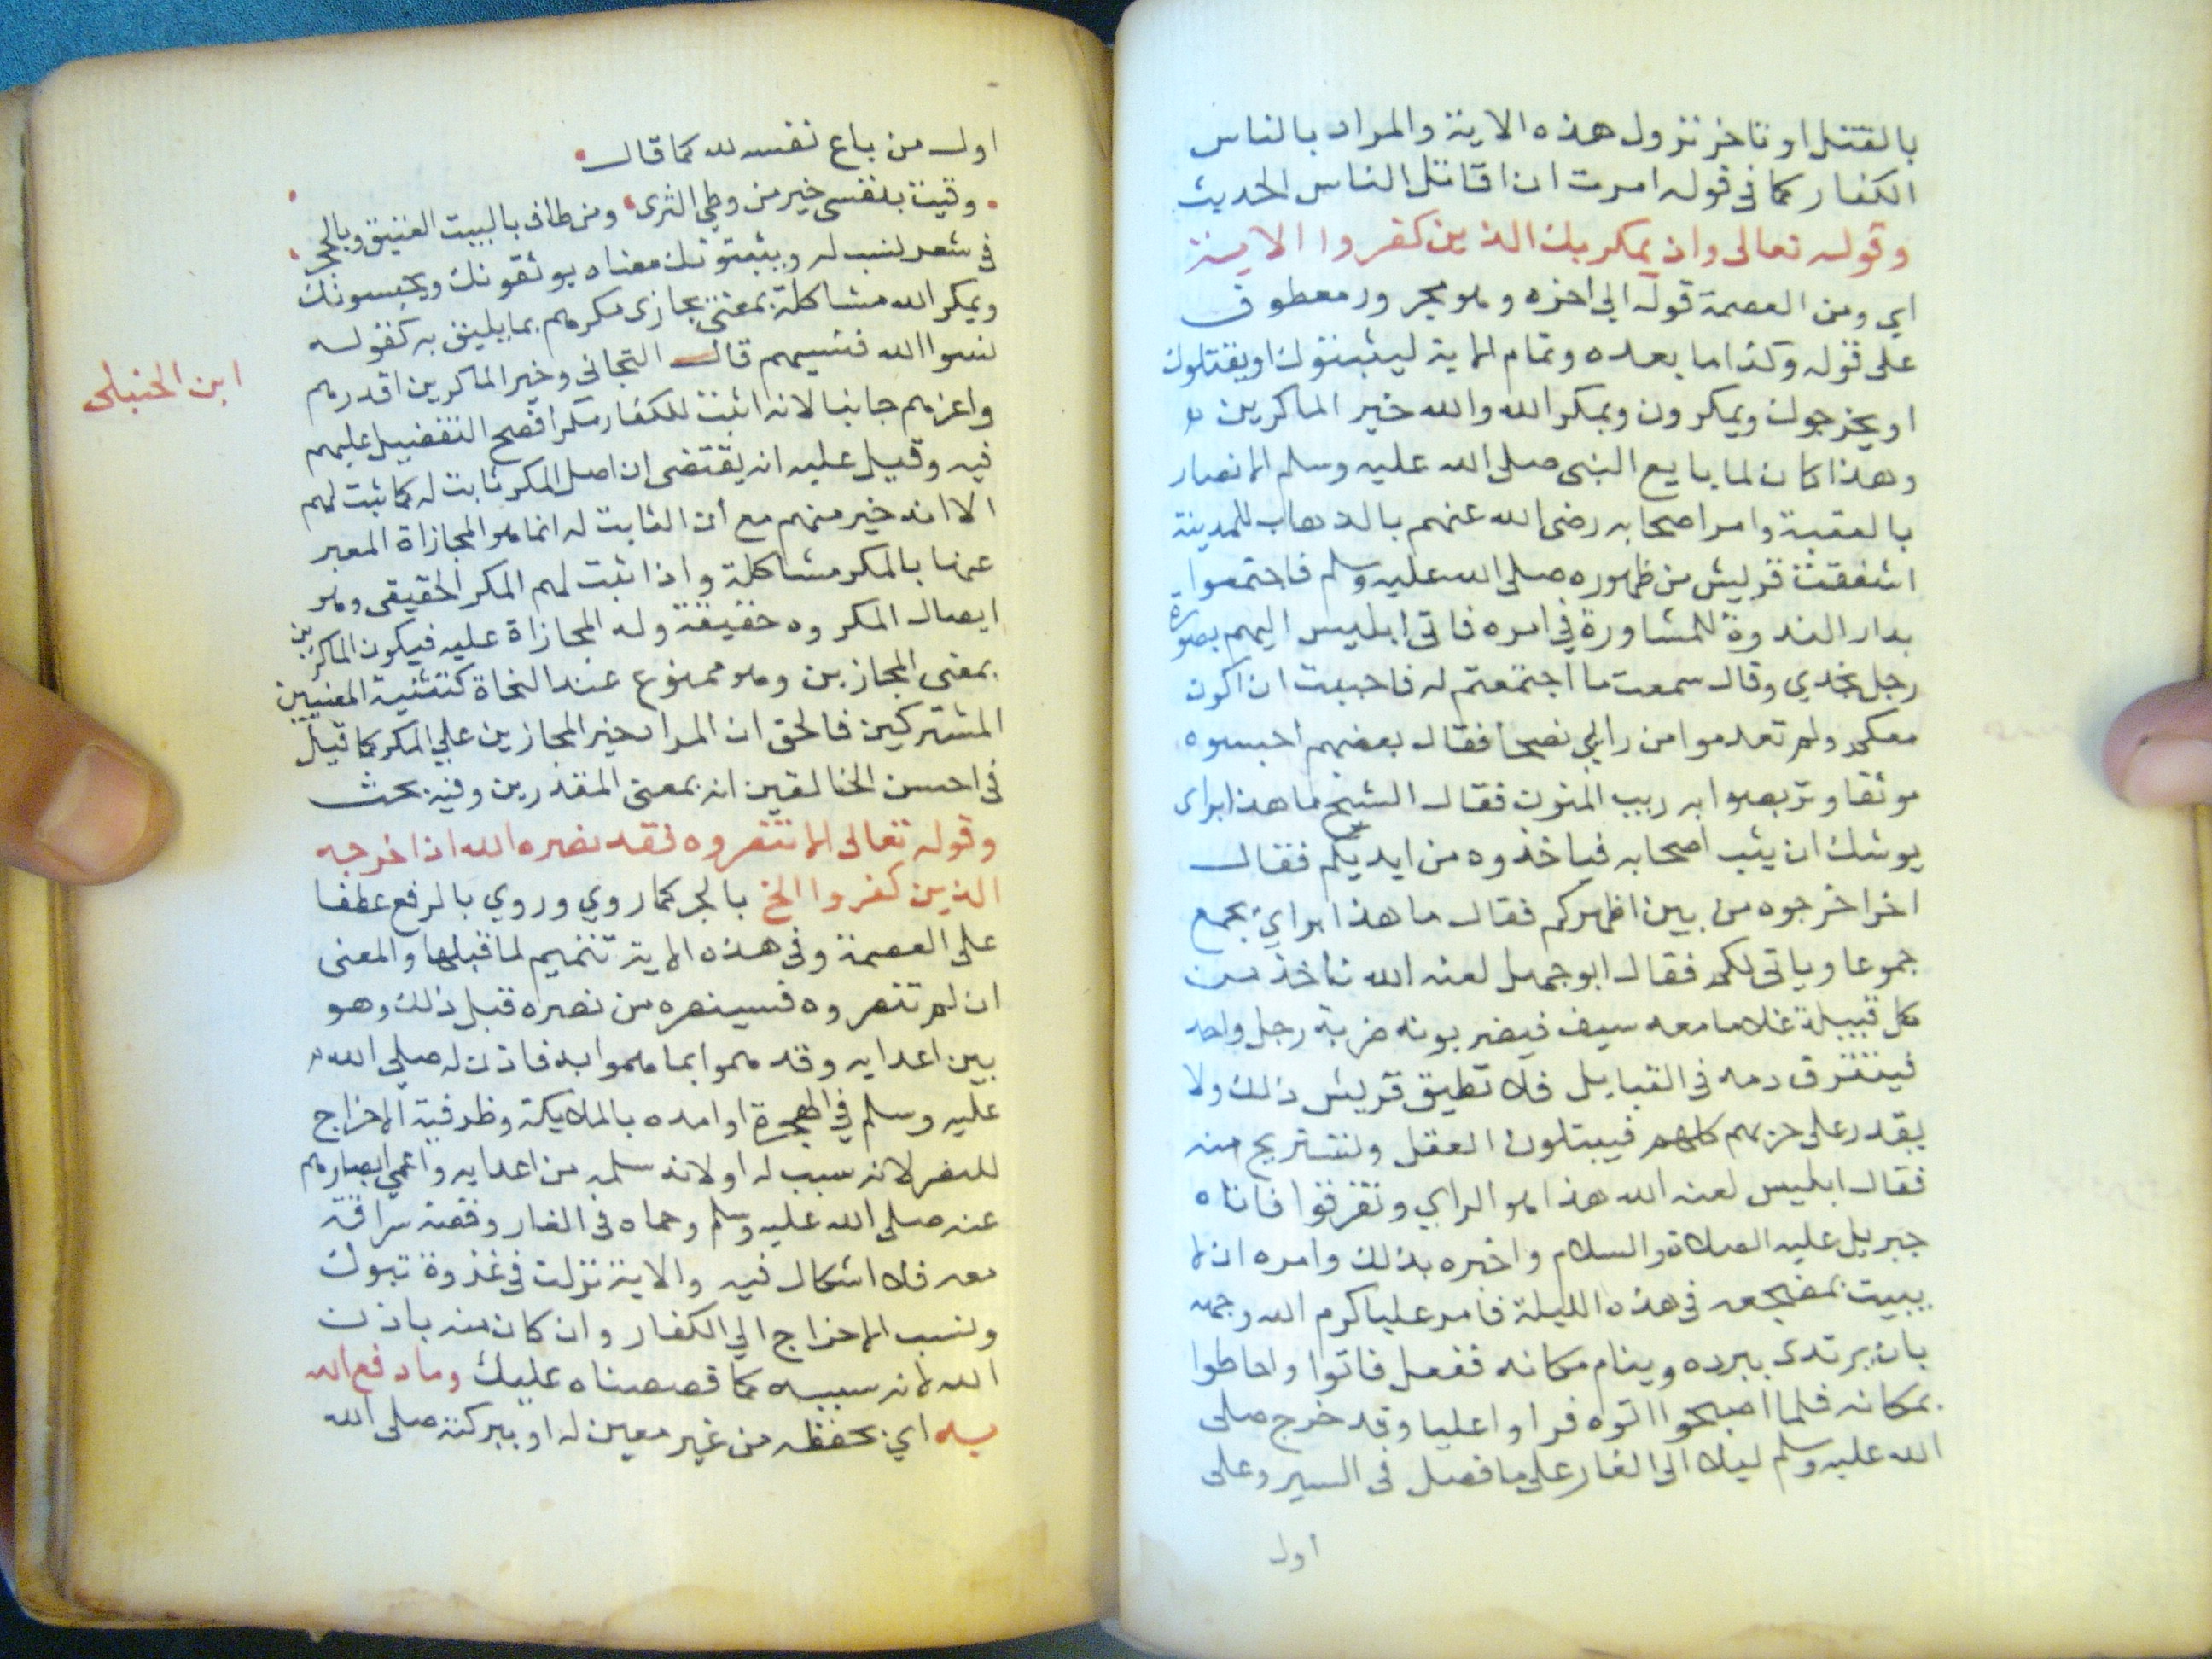 بالقتل او تاخر نزول هذه الاية والمراد بالناس
الكفار كما في قوله امرت ان اقاتل الناس الحديث
وقوله تعالى واذ يمكر بك الذين كفروا الاية
اي ومن العصمة قوله الي اخره وهو مجرور معطوف
على قوله وكذا ما بعده وتمام الاية ليثبتوك او يقتلوك
او يخرجوك ويمكرون ويمكر الله والله خير الماكرين
وهذا كان لما بايع النبى صلى الله عليه وسلم الانصار
بالعقبة وامر اصحابه رضى الله عنهم بالذهاب للمدينة
اشفقت قريش من ظهوره صلى الله عليه وسلم فاجتمعوا
بدار الندوة للمشاورة في امره فاتى ابليس اليهم بصورة
رجل نجدي وقال سمعت ما اجتمعتم له فاحببت ان اكون
معكم ولم تعدموا من رايي نصحا فقال بعضهم احبسوه
موثقا وتربصوا به ريب المنون فقال الشيخ ما هذا براى
يوشك ان يثب اصحابه فياخذوه من ايديكم فقال
اخر اخرجوه من بين اظهركم فقال ما هذا براي يجمع
جموعا وياتى لكم فقال ابو جهل لعنه الله ناخذ من
كل قبيلة غلاما معه سيف فيضربونه ضربة رجل واحد
فيتفرق دمه في القبايل فلا تطيق قريش ذلك ولا
يقدر على حزبهم كلهم فيبتلون العقل ونستريح منه
فقال ابليس لعنه الله هذا هو الراي وتفرقوا فاتاه
جبريل عليه الصلاة والسلام واخبره بذلك وامره ان لا
يبيت بمضجعه في هذه الليلة فامر عليا كرم الله وجهه
بان يرتدى ببرده وينام مكانه ففعل فاتوا واحاطوا
بمكانه فلما اصبحوا اتوه فراوا عليا وقد خرج صلى
الله عليه وسلم ليلا الى الغار على ما فصل في السير وعلى
اول
اول من باع نفسه لله كما قال
وقيت بنفسى خير من وطي الثرى ومن طاف بالبيت العتيق وبالحجر
في شعر نسب له ويثبتوتك معناه يوثقونك ويحبسونك
ويمكر الله مشاكلة بمعنى يجازى مكرهم بما يليق به كقوله
نسوا الله فنسيهم قال التجانى وخير الماكرين اقدرهم
واعزهم جانبا لانه اثبت للكفار مكرا فصح التفضيل عليهم
ابن الحنبلى
فيه وقيل عليه انه يقتضى ان اصل المكر ثابت له كما ثبت لهم
الا انه خير منهم مع أن الثابت له انما هو المجازاة المعبر
عنها بالمكر مشاكلة واذا ثبت لهم المكر الحقيقى وهو
ايصال المكروه حقيقة وله المجازاة عليه فيكون الماكرين
بمعنى المجازين وهو ممنوع عند النحاة كتثنية المعنيين
المشتركين فالحق ان المراد خير المجازين علي المكر كما قيل
في احسن الخالقين انه بمعنى المقدرين وفيه بحث
وقوله تعالى الا تنصروه فقد نصره الله اذ اخرجه
الذين كفروا الخ بالجر كما روي وروي بالرفع عطفا
على العصمة وفي هذه الاية تتميم لما قبلها والمعنى
ان لم تنصروه فسينصره من نصره قبل ذلك وهو
بين اعدايه وقد هموا بما هموا به فاذن له صلى الله
عليه وسلم في الهجرة او امده بالملايكة وظرفية الاخراج
للنصر لانه سبب له او لانه سلمه من اعدايه واعمي ابصارهم
عنه صلى الله عليه وسلم وحماه في الغار وقصة سراقة
معه فلا اشكال فيه والاية نزلت في غزوة تبوك
ونسب الاخراج الي الكفار وان كان منه باذن
الله لانه سببه كما قصصناه عليك وما دفع الله
به اي بحفظه من غير معين له او ببركته صلى الله